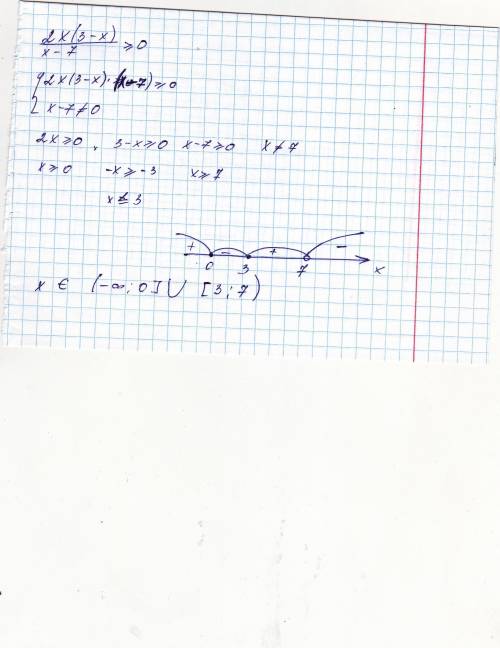 2x(3-x)/x-7 ⩾ 0
{2x(3-x)·(x-7)⩾0
x-7≠0
2x⩾0, 3-x⩾0 x-7⩾0 x≠7
x⩾0 -x⩾-3 x⩾7
x⩽3
+ - + -
0 3 7 x
x ∈ (-∞;0]∪[3;7)